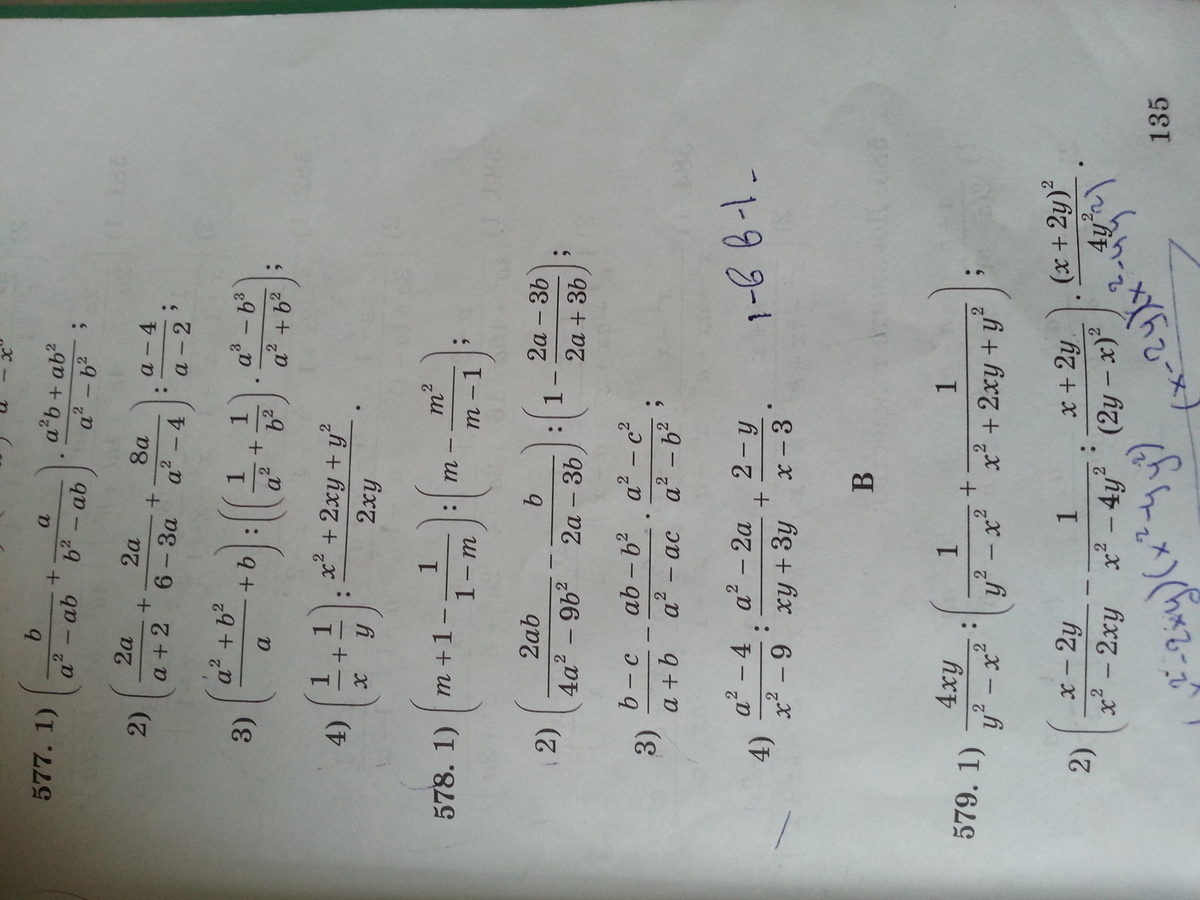 577. 1) (b/(a² − ab) + a/(b² − ab)) · (a²b + ab²)/(a² − b²);
2) (2a/(a + 2) + 2a/(6 − 3a) + 8a/(a² − 4)) : (a − 4)/(a − 2);
3) ((a² + b²)/a + b) : ((1/a² + 1/b²) · (a³ − b³)/(a² + b²));
4) (1/x + 1/y) : (x² + 2xy + y²)/(2xy).
578. 1) (m + 1 − 1/(1 − m)) : (m − m²/(m − 1));
2) (2ab/(4a² − 9b²) − b/(2a − 3b)) : (1 − (2a − 3b)/(2a + 3b));
3) (b − c)/(a + b) − (ab − b²)/(a² − ac) · (a² − c²)/(a² − b²);
4) (a² − 4)/(x² − 9) : (a² − 2a)/(xy + 3y) + (2 − y)/(x − 3).
1-в в-1-
В
579. 1) 4xy/(y² − x²) : (1/(y² − x²) + 1/(x² + 2xy + y²));
2) ((x − 2y)/(x² − 2xy) − 1/(x² − 4y²) : (x + 2y)/(2y − x)²) · (x + 2y)²/(4y²).
135